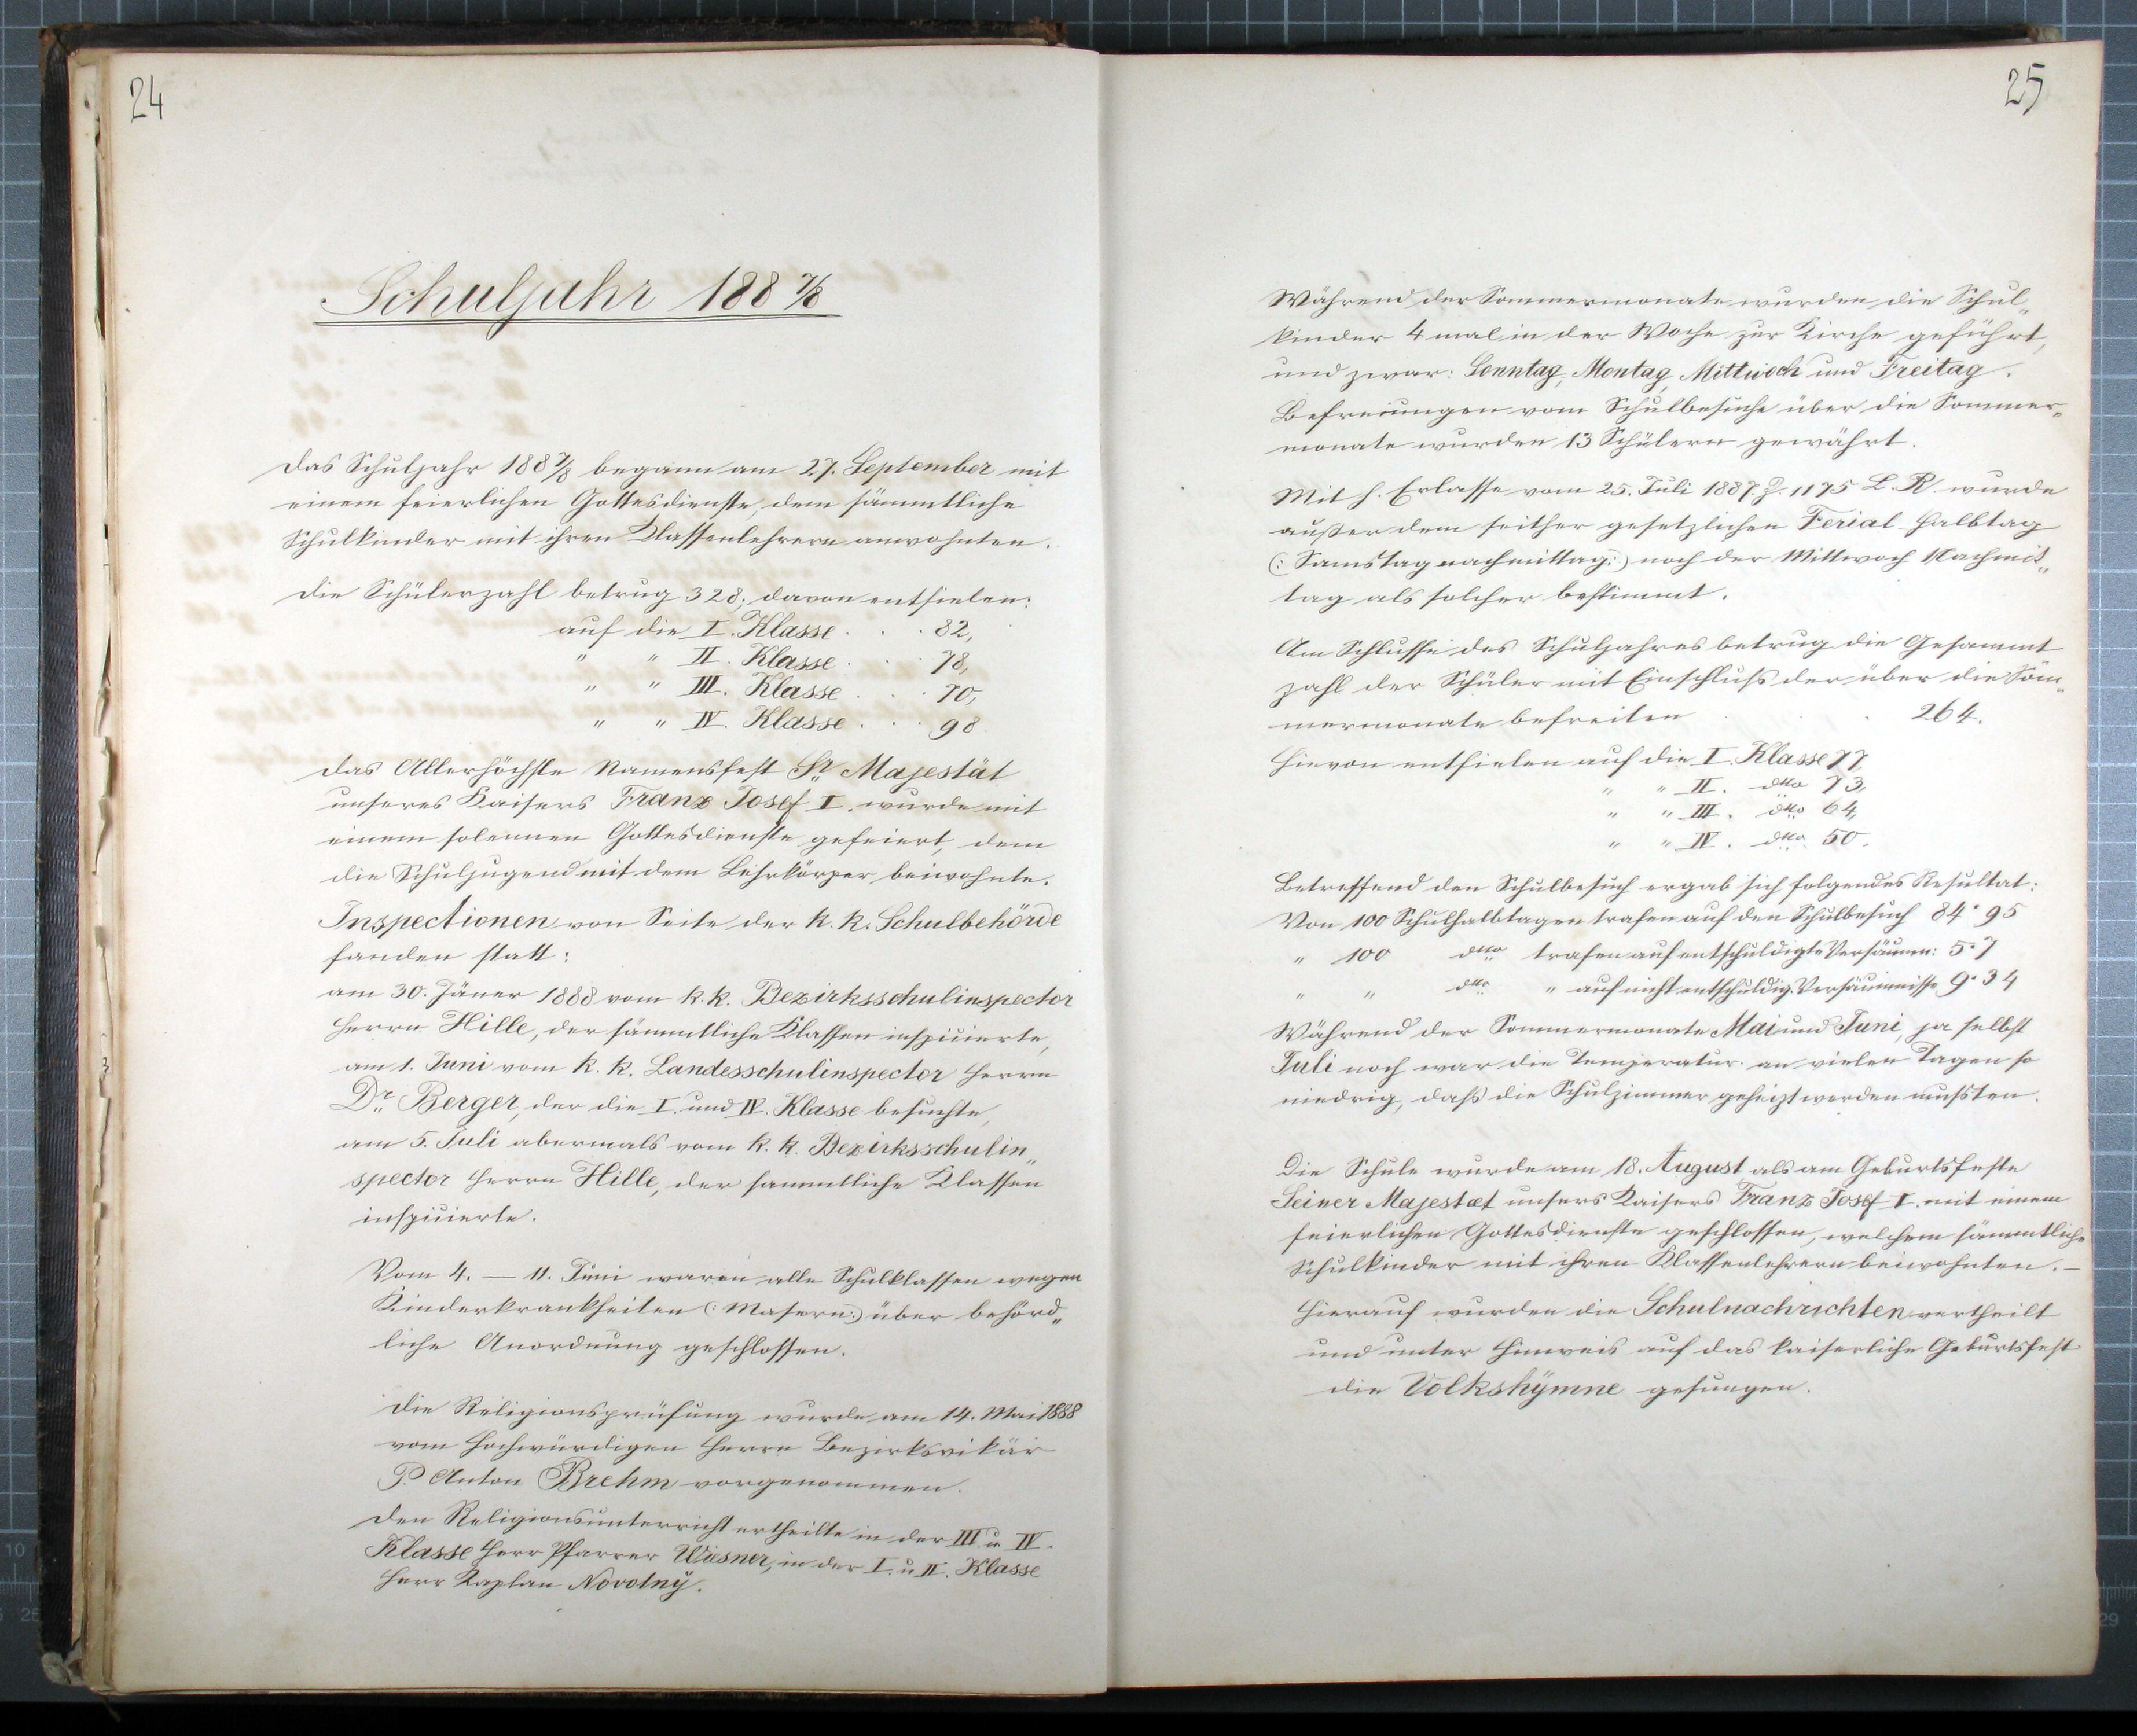 24
Schuljahr 188 7/8
Das Schuljahr 188 7/8 begann am 27. September mit
einem feierlichen Gottesdienste, dem sämmtliche
Schulkinder mit ihren Klassenlehrern anwohnten.
Die Schülerzahl betrug 328; davon entfielen:
auf die I. Klasse . . . 82,
" " II. Klasse . . . 78,
" " III. Klasse . . . 70,
" " IV. Klasse . . . 98.
Das Allerhöchste Namensfest Sr Majestät
unseres Kaisers Franz Josef I. wurde mit
einem solennen Gottesdienste gefeiert, dem
die Schuljugend mit dem Lehrkörper beiwohnte.
Inspectionen von Seite der k. k. Schulbehörde
fanden statt:
am 30. Jäner 1888 vom k. k. Bezirksschulinspector
Herrn Hille, der sämmtliche Klassen inspicierte,
am 1. Juni vom k. k. Landesschulinspector Herrn
Dr. Berger, der die I. und IV. Klasse besuchte,
am 5. Juli abermals vom k. k. Bezirksschulin„
spector Herrn Hille, der sammtliche Klassen
inspicierte.
Vom 4. – 11. Juni waren alle Schulklassen wegen
Kinderkrankheiten (: Masern :) über behörd„
liche Anordnung geschlossen.
Die Religionsprüfung wurde am 14. Mai 1888
vom hochwürdigen Herrn Bezirksvikär
P. Anton Brehm vorgenommen.
Den Religionsunterricht ertheilte in der III u. IV.
Klasse Herr Pfarrer in der I. u. II. Klasse
Herr Kaplan Novotný.
25
Während der Sommermonate wurden die Schul„
kinder 4 mal in der Woche zur Kirche geführt,
und zwar: Sonntag, Montag, Mittwoch und Freitag.
Befreiungen vom Schulbesuche über die Sommer„
monate wurden 13 Schülern gewährt.
Mit h. Erlasse vom 25. Juli 1887. Z. 1175 L. R. wurde
außer dem seither gesetzlichen Ferial-Halbtag
(: Samstag nachmittag :) noch der Mittwoch Nachmit„
tag als solcher bestimmt.
Am Schlusse des Schuljahres betrug die Gesammt
zahl der Schüler mit Einschluß der über die Som„
mermonate befreiten . . 264.
Hievon entfielen auf die I. Klasse 77,
" " II. dtto 73,
" " III. dtto 64,
" " IV. dtto 50.
Betreffend den Schulbesuch ergab sich folgendes Resultat:
Von 100 Schulhalbtagen trafen auf den Schulbesuch 84·95
" 100 dtto trafen auf entschuldigte Versäumn: 5·7
" " dtto " auf nicht entschuldig. Versäumnisse 9·34
Während der Sommermonate Mai und Juni, ja selbst
Juli noch war die Temperatur an vielen Tagen so
niedrig, daß die Schulzimmer geheizt werden mußten.
Die Schule wurde am 18. August als am Geburtsfeste
Seiner Majestæt unsers Kaisers Franz Josef I. mit einem
feierlichen Gottesdienste geschlossen, welchem sämmtliche
Schulkinder mit ihren Klassenlehrern beiwohnten. –
Hierauf wurden die Schulnachrichten vertheilt
und unter Hinweis auf das kaiserliche Geburtsfest
die Volkshÿmne gesungen.